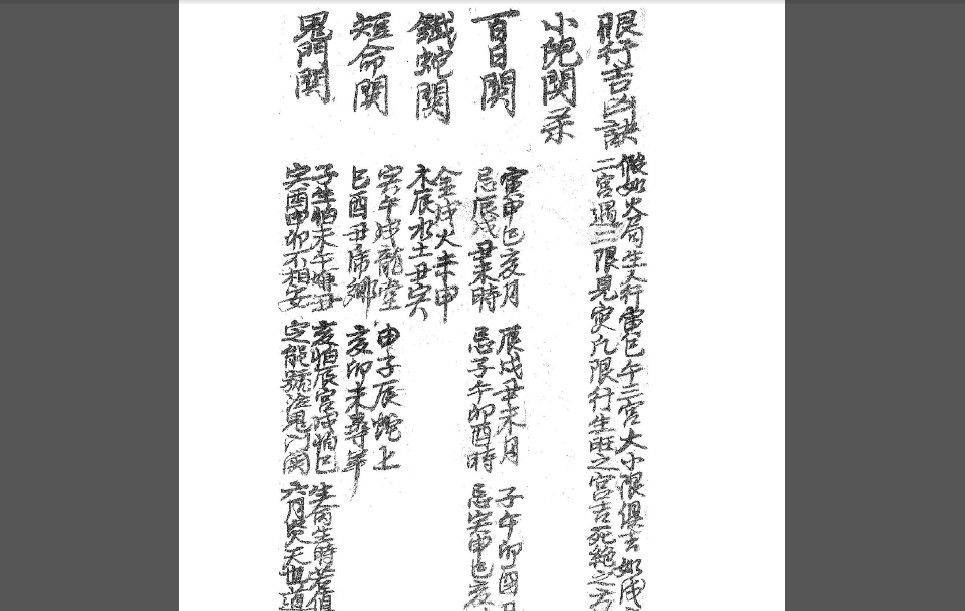 限行吉凶訣
假如火局生人行寅巳午三宮大小限俱吉如戌
二宮過二限見災凡限行生旺之宮吉死絕之方
小兒関杀
百日関
寅申巳亥月 辰戌丑未月 子午卯酉月
忌辰戌丑未時 忌子午卯酉時 忌寅申巳亥
鐵蛇関
金戌火未申
木辰水土丑寅
短命関
寅午戌龍堂 申子辰蛇上
巳酉丑虎鄉 亥卯未尋羊
鬼門関
子生怕未午嫌丑 亥怕辰宮戌怕巳 生月生時若值
寅酉申卯不相安 定能號注鬼門関 六月災天也道